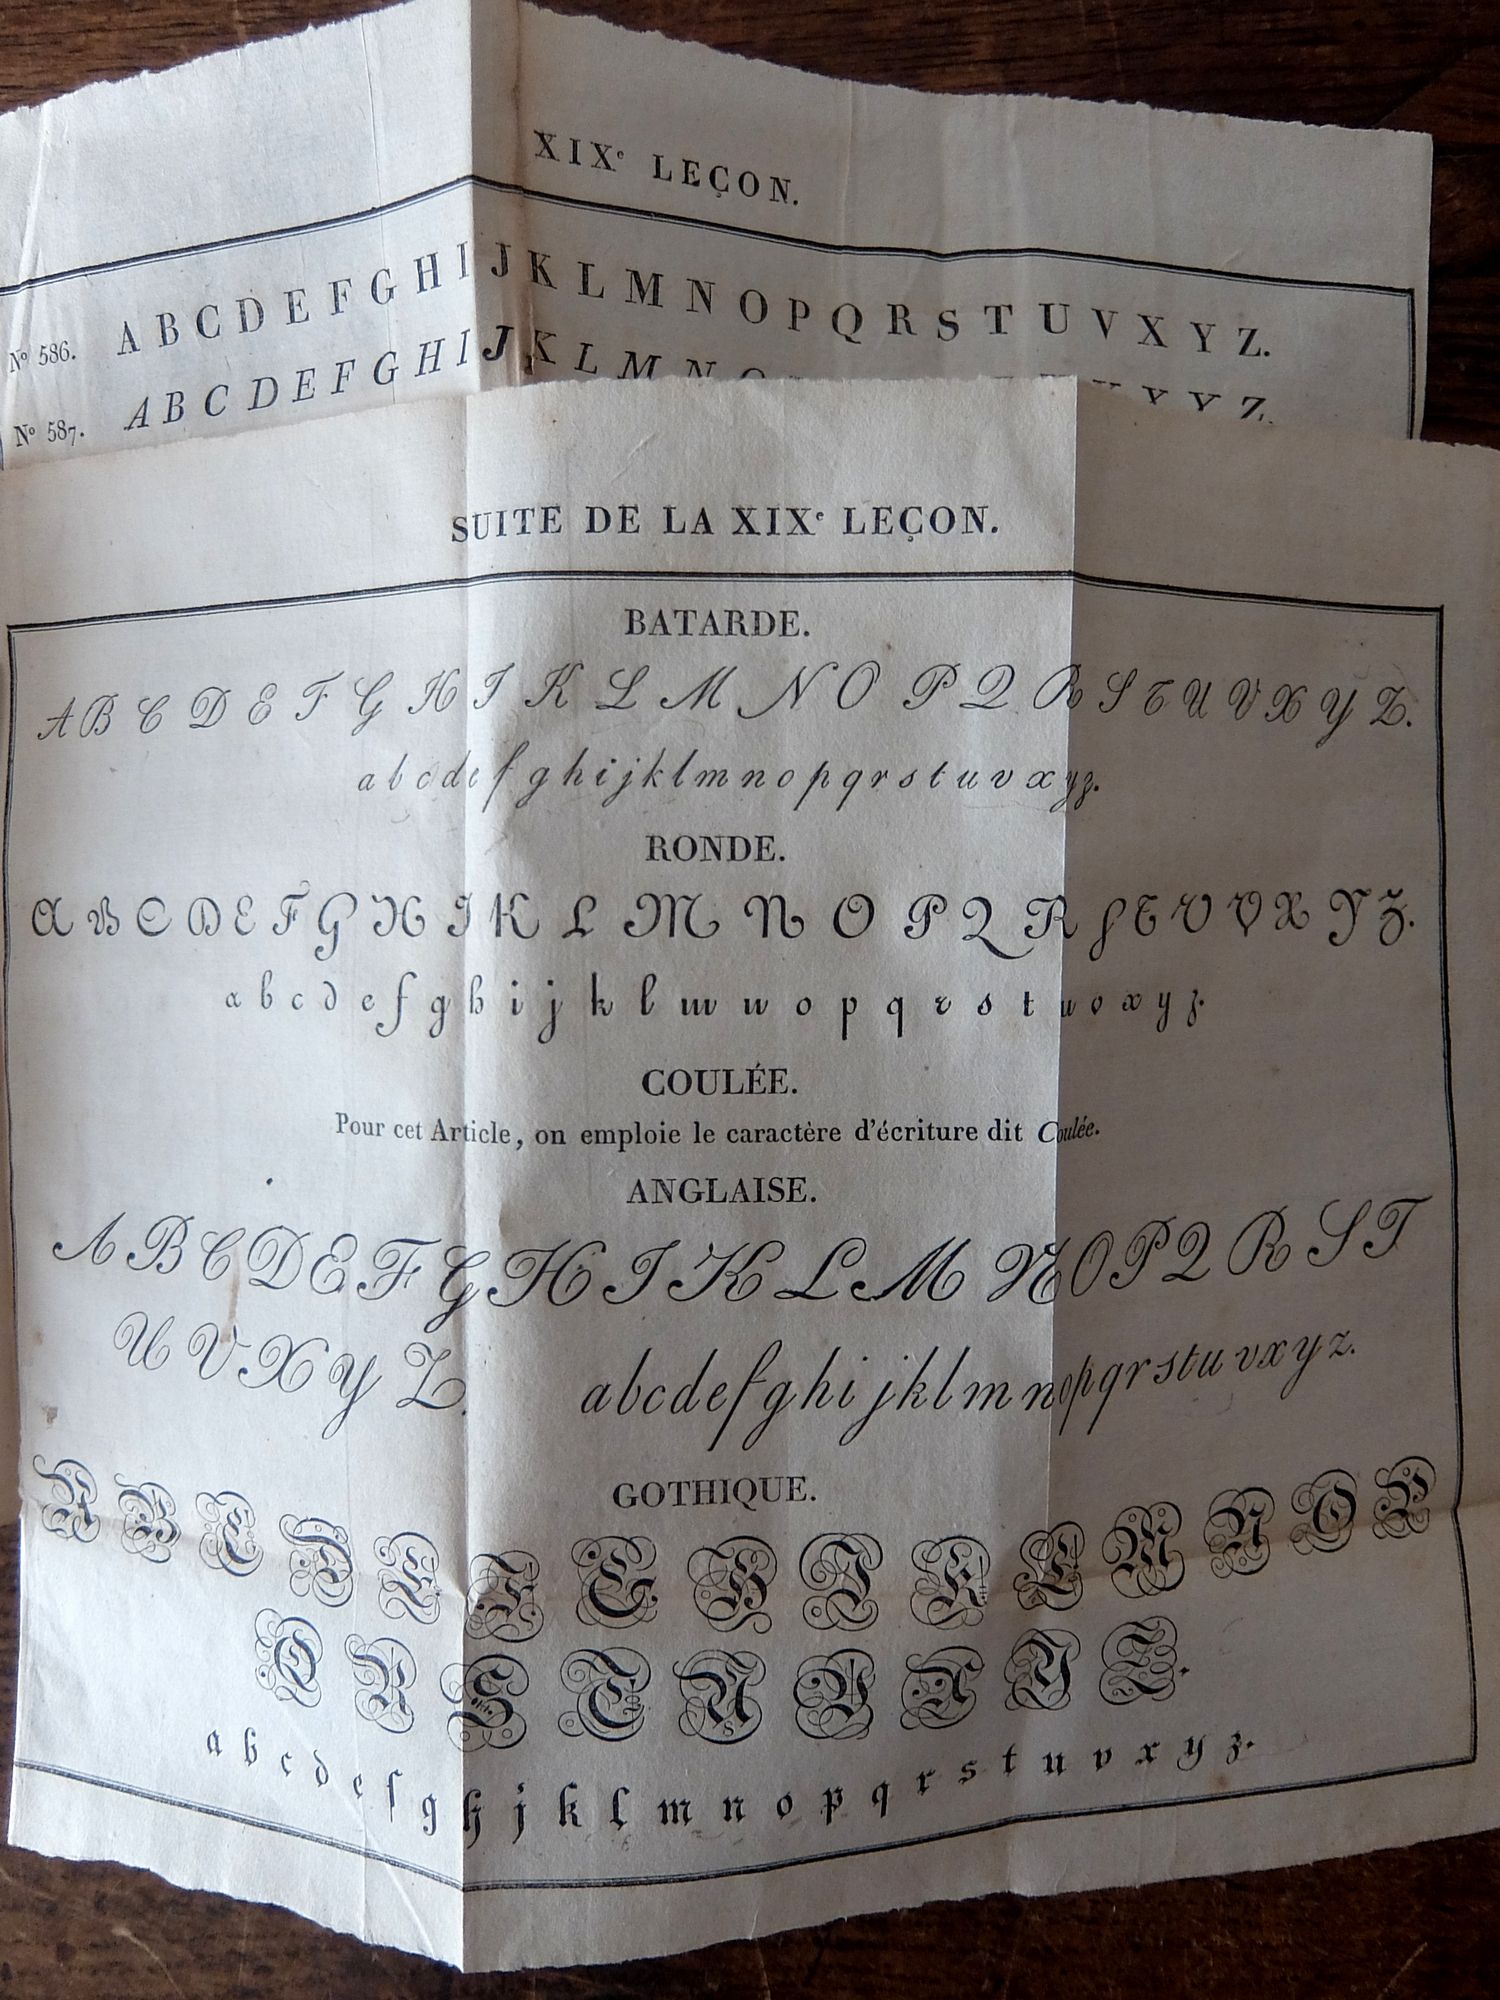 XIXe LEÇON.
No 586. A B C D E F G H I J K L M N O P Q R S T U V X Y Z.
No 587. A B C D E F G H I J K L M N O X Y Z.
SUITE DE LA XIXe LEÇON.
BATARDE.
A B C D E F G H I K L M N O P Q R S T U V X Y Z.
a b c d e f g h i j k l m n o p q r s t u v x y z.
RONDE.
A B C D E F G H I K L M N O P Q R S T U V X Y Z.
a b c d e f g h i j k l m n o p q r s t u v x y z.
COULÉE.
Pour cet Article, on emploie le caractère d'écriture dit Coulée.
ANGLAISE.
A B C D E F G H I K L M N O P Q R S T
U V X Y Z. a b c d e f g h i j k l m n o p q r s t u v x y z.
GOTHIQUE.
A B C D E F G H I K L M N O P
Q R S T U V X Y Z.
a b c d e f g h j k l m n o p q r s t u v x y z.